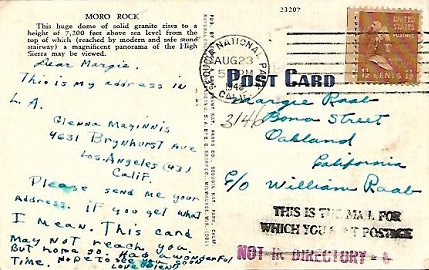 MORO ROCK
This huge dome of solid granite rises to a
height of 7,200 feet above sea level from the
top of which (reached by modern and safe stone
stairway) a magnificent panorama of the High
Sierra may be viewed.
Dear Margie.
This is my address in
L. A.
Glenna Maginnis
4631 Brynhurst Ave
Los Angeles (43)
Calif.
Please send me your
Address. if you get what
I mean. This card
may not reach you.
But hope so. Had a wonderful
Time. Hope to see you soon
Love
23207
SEQUOIA NATIONAL PARK
AUG 23
PM
1948
CALIF.
POST CARD
Margie Raab
3146 Bona Street
Oakland
California
c/o William Raab
THIS IS THE MAIL FOR
WHICH YOU SENT POSTAGE
NOT IN DIRECTORY